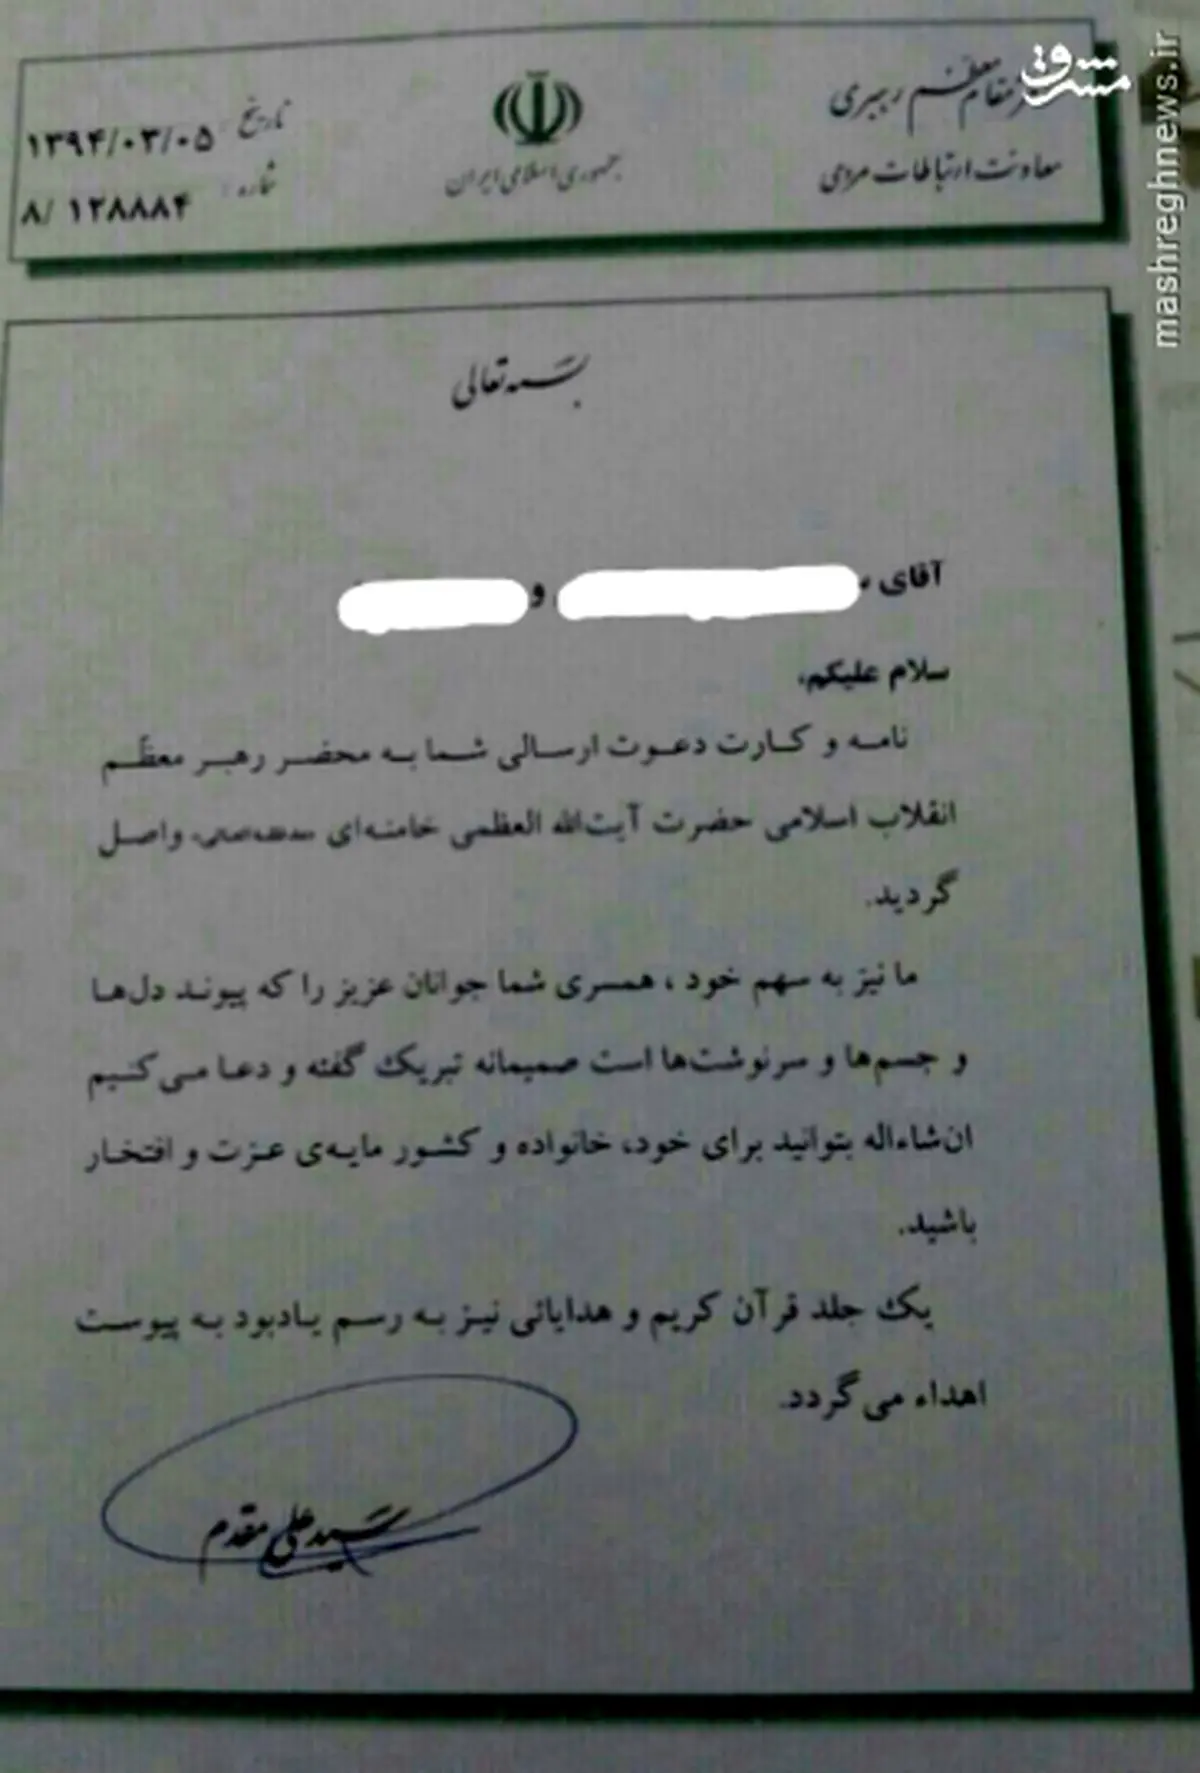 دفتر مقام معظم رهبری
معاونت ارتباطات مردمی
جمهوری اسلامی ایران
تاریخ: ۱۳۹۴/۰۳/۰۵
شماره: ۸/ ۱۲۸۸۸۴
مشرق
mashreghnews.ir
بسمه تعالی
آقای و
سلام علیکم،
نامه و کارت دعوت ارسالی شما به محضر رهبر معظّم
انقلاب اسلامی حضرت آیت‌الله العظمی خامنه‌ای مدظله‌العالی، واصل
گردید.
ما نیز به سهم خود ، همسری شما جوانان عزیز را که پیوند دل‌ها
و جسم‌ها و سرنوشت‌ها است صمیمانه تبریک گفته و دعا می‌کنیم
ان‌شاءاله بتوانید برای خود، خانواده و کشور مایه‌ی عزت و افتخار
باشید.
یک جلد قرآن کریم و هدایائی نیز به رسم یادبود به پیوست
اهداء می‌گردد.
سید علی مقدم